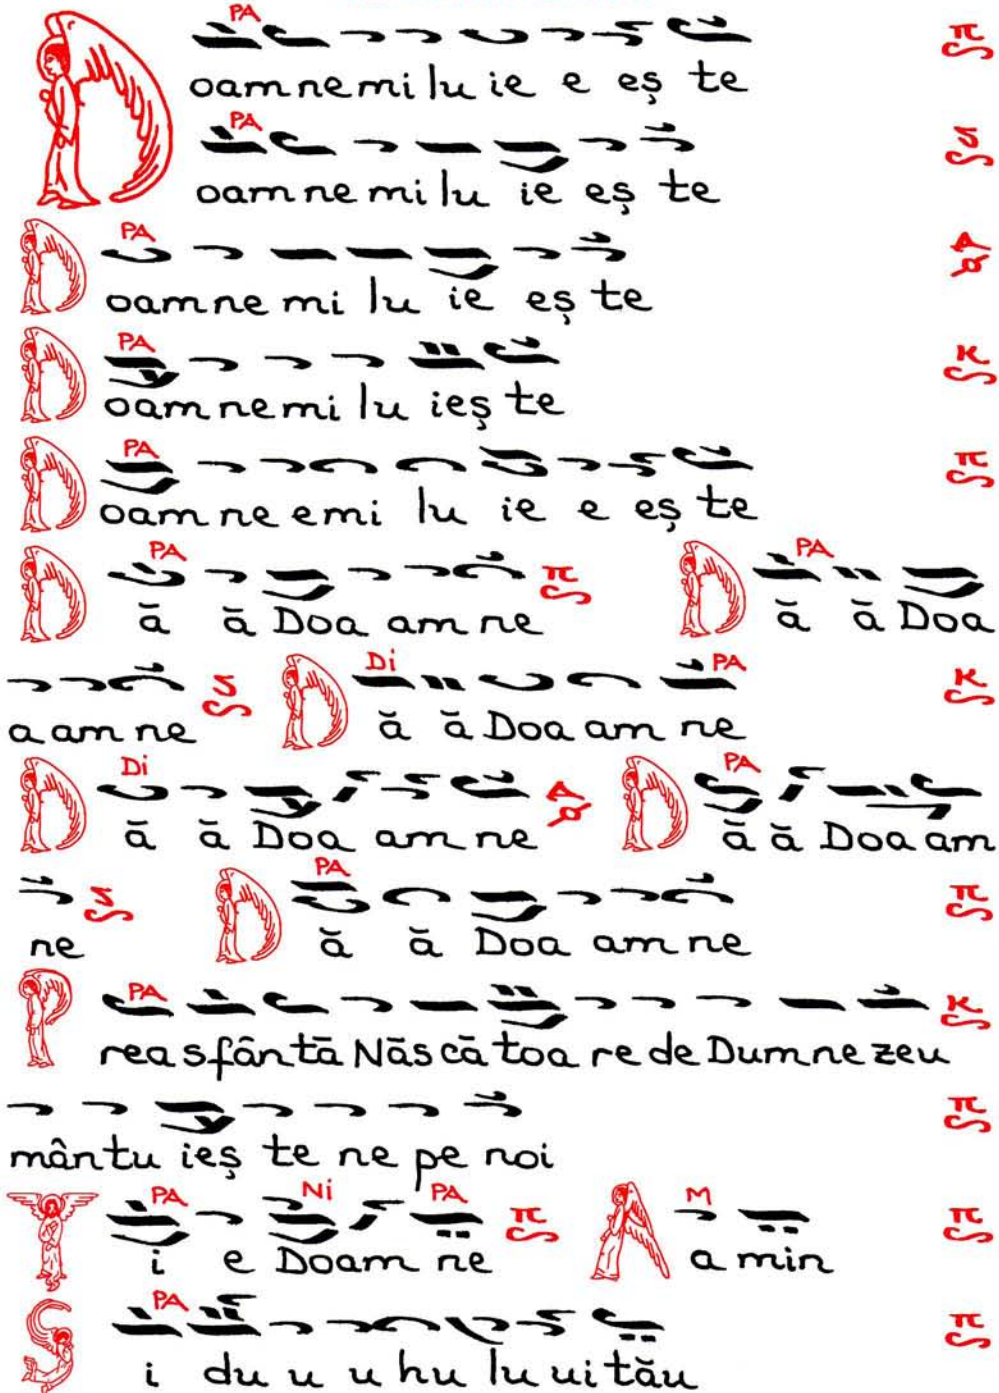 PA π
Doamne miluie e eș te
PA
Doamne miluie eș te
PA
Doamne miluie eș te
PA κ
Doamne miluieș te
PA π
Doamne emi lu ie e eș te
PA π PA
Dă ă Doa am ne Dă ă Doa
Di PA κ
a am ne Dă ă Doa am ne
Di PA
Dă ă Doa am ne Dă ă Doa am
PA π
ne Dă ă Doa am ne
PA κ
Prea sfântă Născătoare de Dumnezeu
π
mântuieș te ne pe noi
PA Ni PA π M π
Ți e Doamne A a min
PA π
Și du u u hu lu ui tău